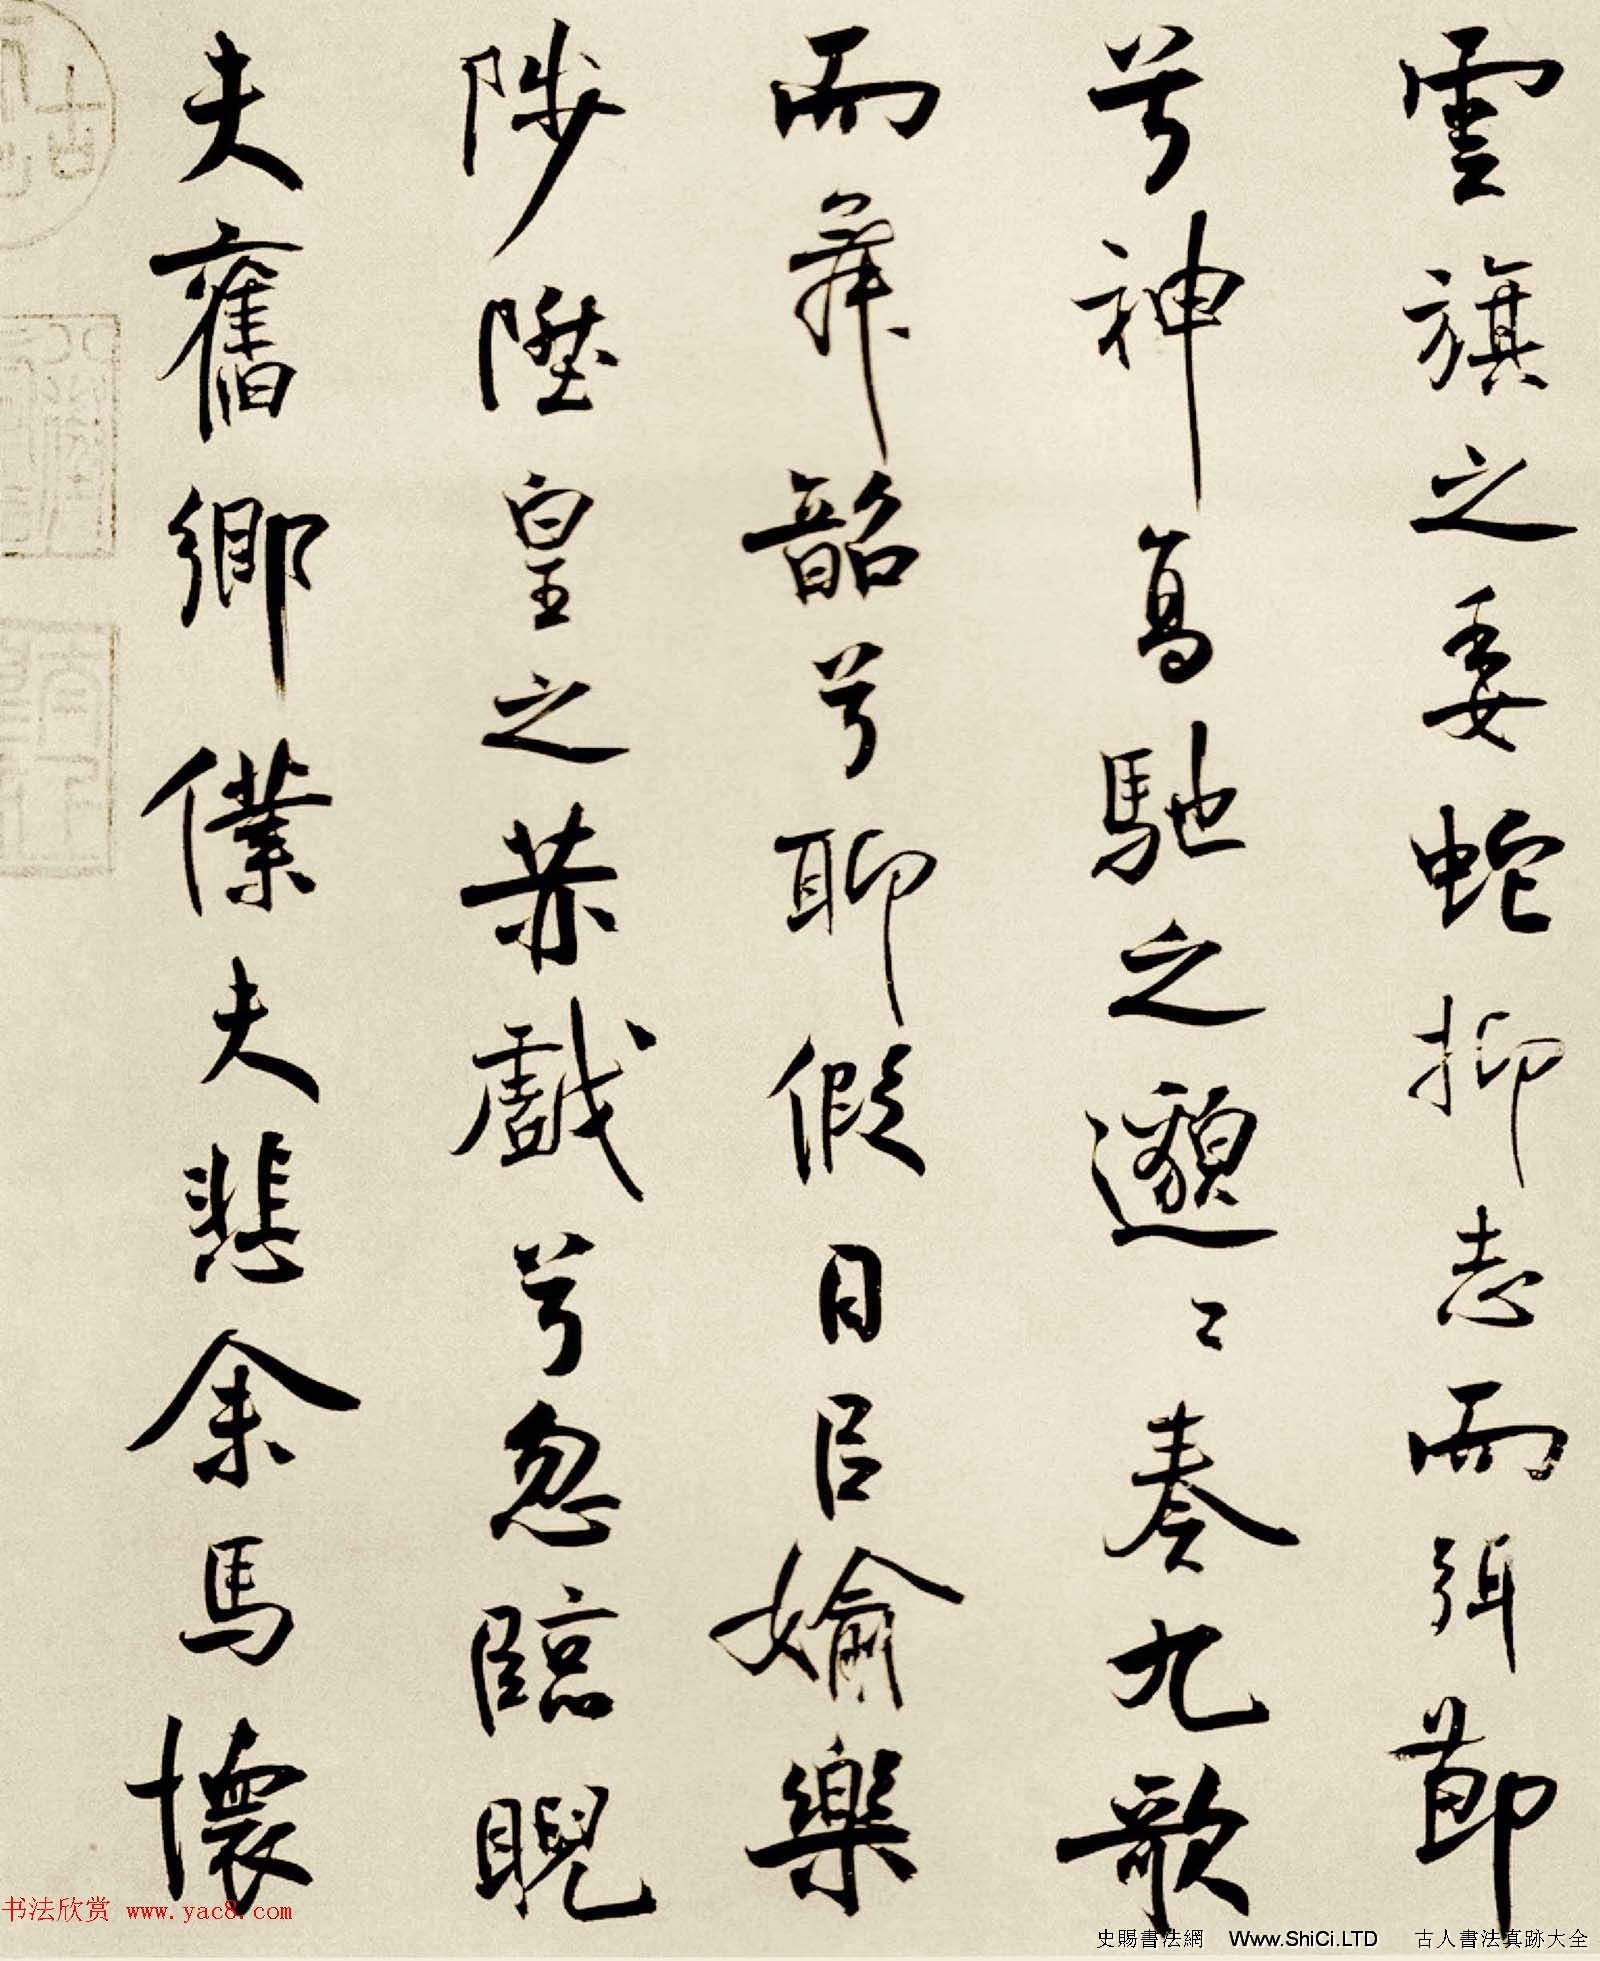 雲旗之委蛇抑志而弭節
兮神高馳之邈〻奏九歌
而舞韶兮聊假日以婾樂
陟陞皇之赫戲兮忽臨睨
夫舊鄉僕夫悲余馬懷
书法欣赏 www.yac8.com
史賜書法網 Www.ShiCi.LTD 古人書法真跡大全